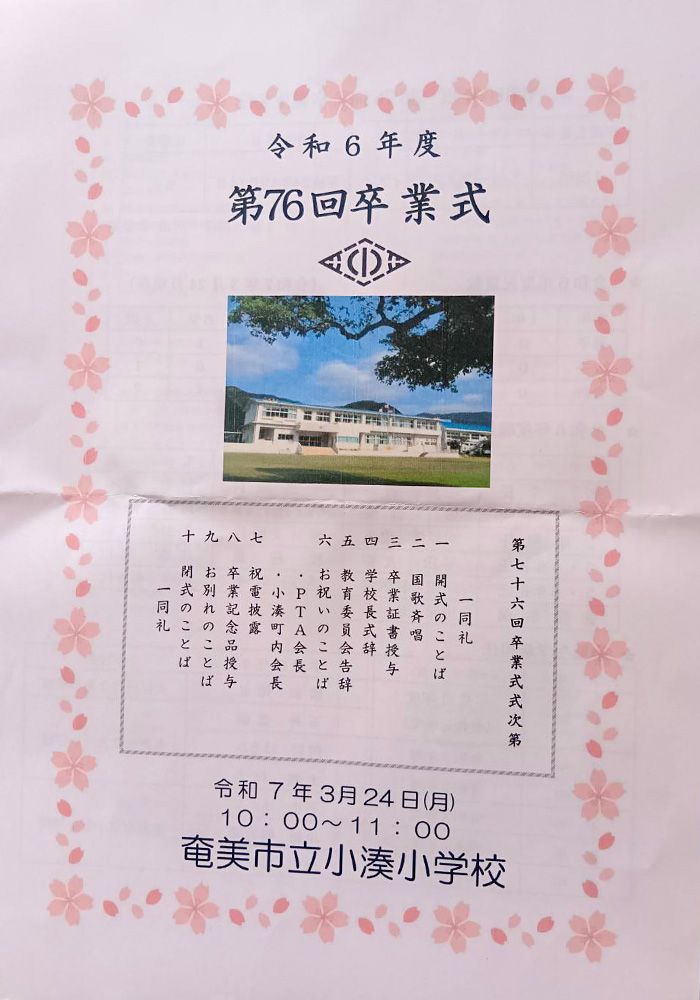 令和6年度
第76回卒業式
小
第七十六回卒業式式次第
一同礼
一 開式のことば
二 国歌斉唱
三 卒業証書授与
四 学校長式辞
五 教育委員会告辞
六 お祝いのことば
・PTA会長
・小湊町内会長
七 祝電披露
八 卒業記念品授与
九 お別れのことば
十 閉式のことば
一同礼
令和7年3月24日(月)
10:00~11:00
奄美市立小湊小学校